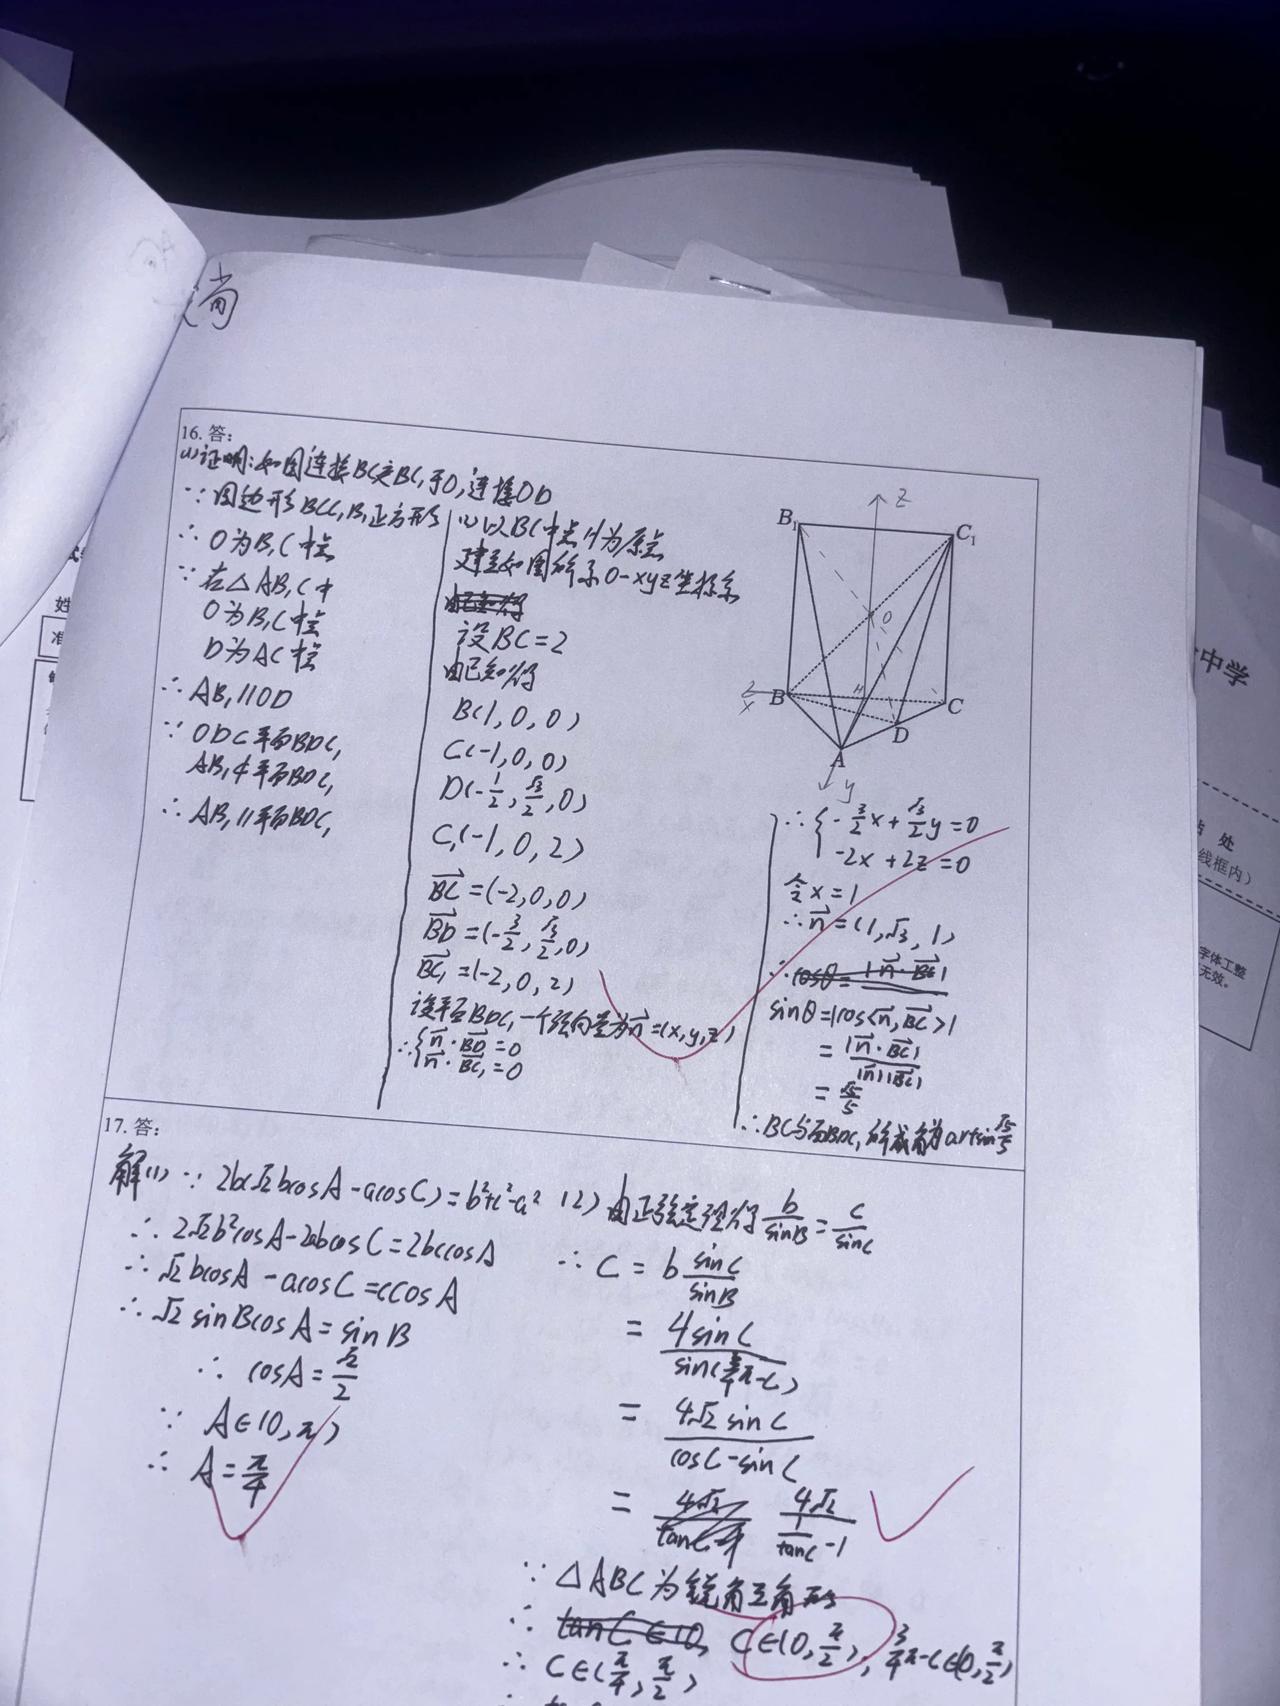 尚
16. 答：
(1)证明：如图连接B₁C交BC₁于O，连接OD
∵四边形BCC₁B₁正方形
∴ O为B₁C中点
∵在△AB₁C中
O为B₁C中点
D为AC中点
∴ AB₁//OD
∵ OD⊂平面BDC₁
AB₁⊄平面BDC₁
∴ AB₁//平面BDC₁
(2)以BC中点H为原点
建立如图所示O-xyz坐标系
设BC=2
由已知得
B(1,0,0)
C(-1,0,0)
D(-1/2, √3/2, 0)
C₁(-1,0,2)
BC→=(-2,0,0)
BD→=(-3/2, √3/2, 0)
BC₁→=(-2,0,2)
设平面BDC₁一个法向量为n→=(x,y,z)
∴{n→·BD→=0
n→·BC₁→=0
B₁
C₁
z
O
B
x
H
C
D
A
y
∴{-3/2x+√3/2y=0
-2x+2z=0
令x=1
∴n→=(1,√3,1)
sinθ=|cos<n→,BC→>|
=|n→·BC→|/|n→||BC→|
=√5/5
∴BC与面BDC₁所成角为arcsin√5/5
17. 答：
解(1) ∵ 2b(√2bcosA-acosC)=b²+c²-a²
∴ 2√2b²cosA-2abcosC=2bccosA
∴ √2bcosA-acosC=ccosA
∴ √2sinBcosA=sinB
∴ cosA=√2/2
∵ A∈(0,π)
∴ A=π/4
(2) 由正弦定理得 b/sinB=c/sinC
∴ C=b sinC/sinB
=4sinC/sin(3/4π-C)
=4√2sinC/cosC-sinC
= 4√2/(1/tanC-1)
∵ △ABC为锐角三角形
∴ C∈(0,π/2), 3/4π-C∈(0,π/2)
∴ C∈(π/4,π/2)
中学
处
线框内）
字体工整
无效。
姓
准